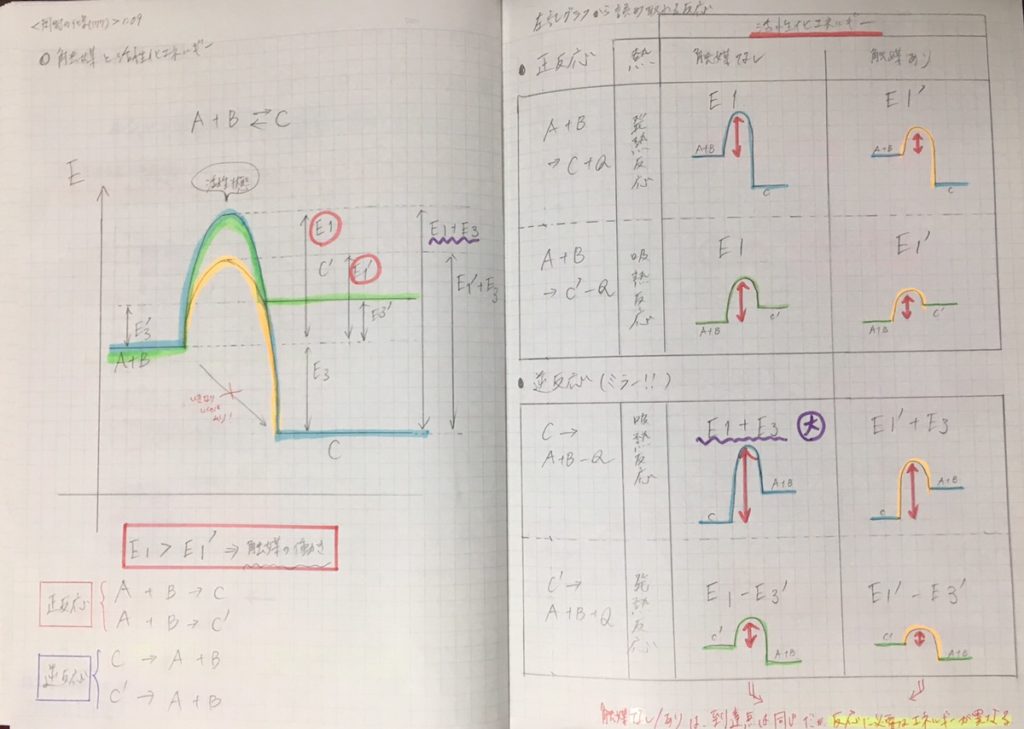 ○ 触媒と活性化エネルギー
A+B ⇄ C
E
活性状態
E1
C'
E1'
E1+E3
E1'+E3
E3'
E3'
A+B
E3
C
E1 > E1' ⇒ 触媒の働き
正反応
A + B → C
A + B → C'
逆反応
C → A+B
C' → A+B
左記グラフから読み取れる反応
活性化エネルギー
● 正反応 熱 触媒なし 触媒あり
A+B
→ C+Q
発熱反応
E1
A+B
C
E1'
A+B
C
A+B
→ C'-Q
吸熱反応
E1
A+B
C'
E1'
A+B
C'
● 逆反応 (ミラー!!)
C →
A+B-Q
吸熱反応
E1+E3 大
C
A+B
E1'+E3
C
A+B
C'→
A+B+Q
発熱反応
E1-E3'
C'
A+B
E1'-E3'
C'
A+B
触媒なし/ありは、到達点は同じだが、反応に必要なエネルギーが異なる